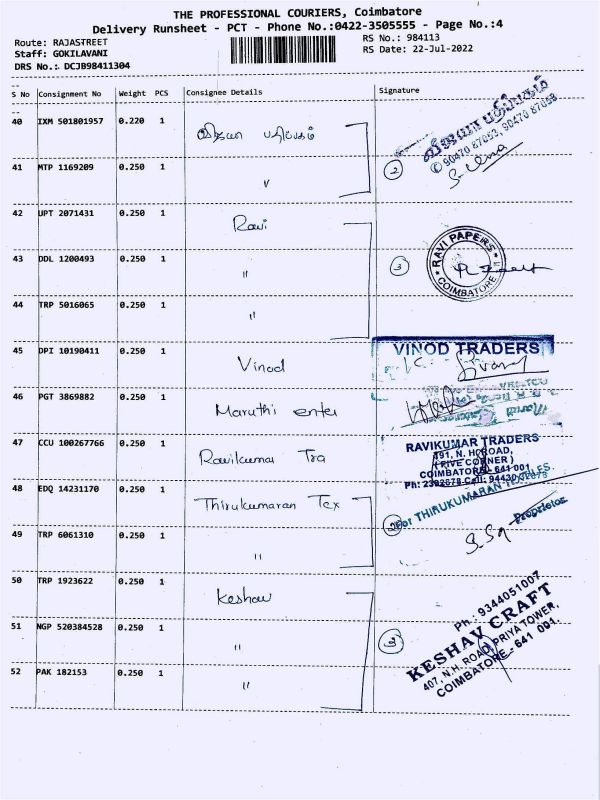 THE PROFESSIONAL COURIERS, Coimbatore
Delivery Runsheet - PCT - Phone No.:0422-3505555 - Page No.:4
Route: RAJASTREET
RS No.: 984113
Staff: GOKILAVANI
RS Date: 22-Jul-2022
DRS No.: DCJB98411304
S No Consignment No Weight PCS Consignee Details Signature
40 IXM 501801957 0.220 1 விஜயா பதிப்பகம்
விஜயா பதிப்பகம்
✆ 90470 87053, 90470 87058
41 MTP 1169209 0.250 1 " 2
42 UPT 2071431 0.250 1 Ravi
RAVI PAPERS
COIMBATORE
43 DDL 1200493 0.250 1 " 3
44 TRP 5016065 0.250 1 "
45 DPI 10190411 0.250 1 Vinod
VINOD TRADERS
46 PGT 3869882 0.250 1 Maruthi enter
47 CCU 100267766 0.250 1 Ravikumar Tra
RAVIKUMAR TRADERS
191, N. H. ROAD,
(FIVE CORNER)
COIMBATORE - 641 001.
48 EDQ 14231170 0.250 1 Thirukumaran Tex
For THIRUKUMARAN TEXTILES
Proprietor
49 TRP 6061310 0.250 1 " 2
50 TRP 1923622 0.250 1 Keshav
Ph : 9344051007
KESHAV CRAFT
407, N.H. ROAD, PRIYA TOWER,
COIMBATORE - 641 001.
51 NGP 520384528 0.250 1 " 3
52 PAK 182153 0.250 1 "